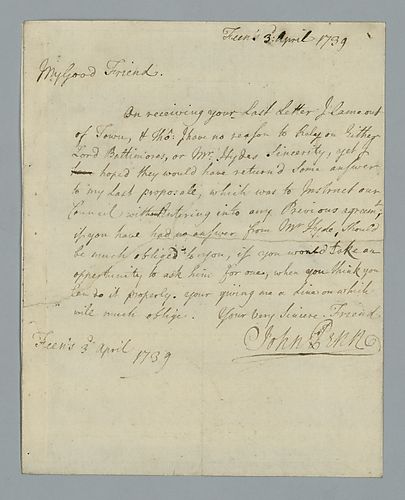 Feens 3d April 1739
My Good Friend.
On receiving your Last Letter I Came out
of Town, & tho: I have no reason to Relay on Either
Lord Baltimores, or Mr. Hydes Sincerity, yet I
hoped they would have return'd Some answer
to my Last proposale, which was to Instruct our
Council without Entering into any Previous agreemt,
if you have had no answer from Mr Hyde, Should
be much obliged to you, if you would take an
oppertunity to ask him for one, when you think you
Can do it properly. your giving me a Line on which
will much oblige. Your Very Sincere Friend
John Penn
Feens 3d April 1739